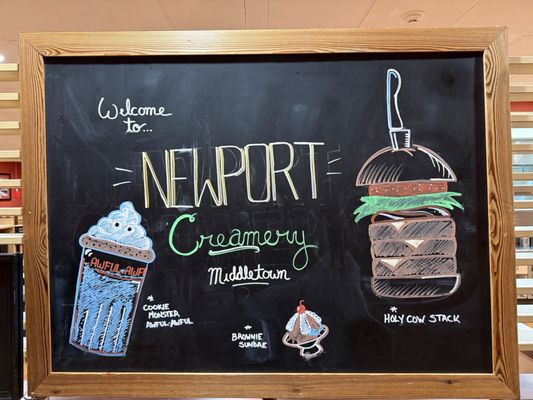 Welcome
to...
NEWPORT
Creamery
Middletown
AWFUL-AWF
* COOKIE
MONSTER
AWFUL-AWFUL
* BROWNIE
SUNDAE
* HOLY COW STACK